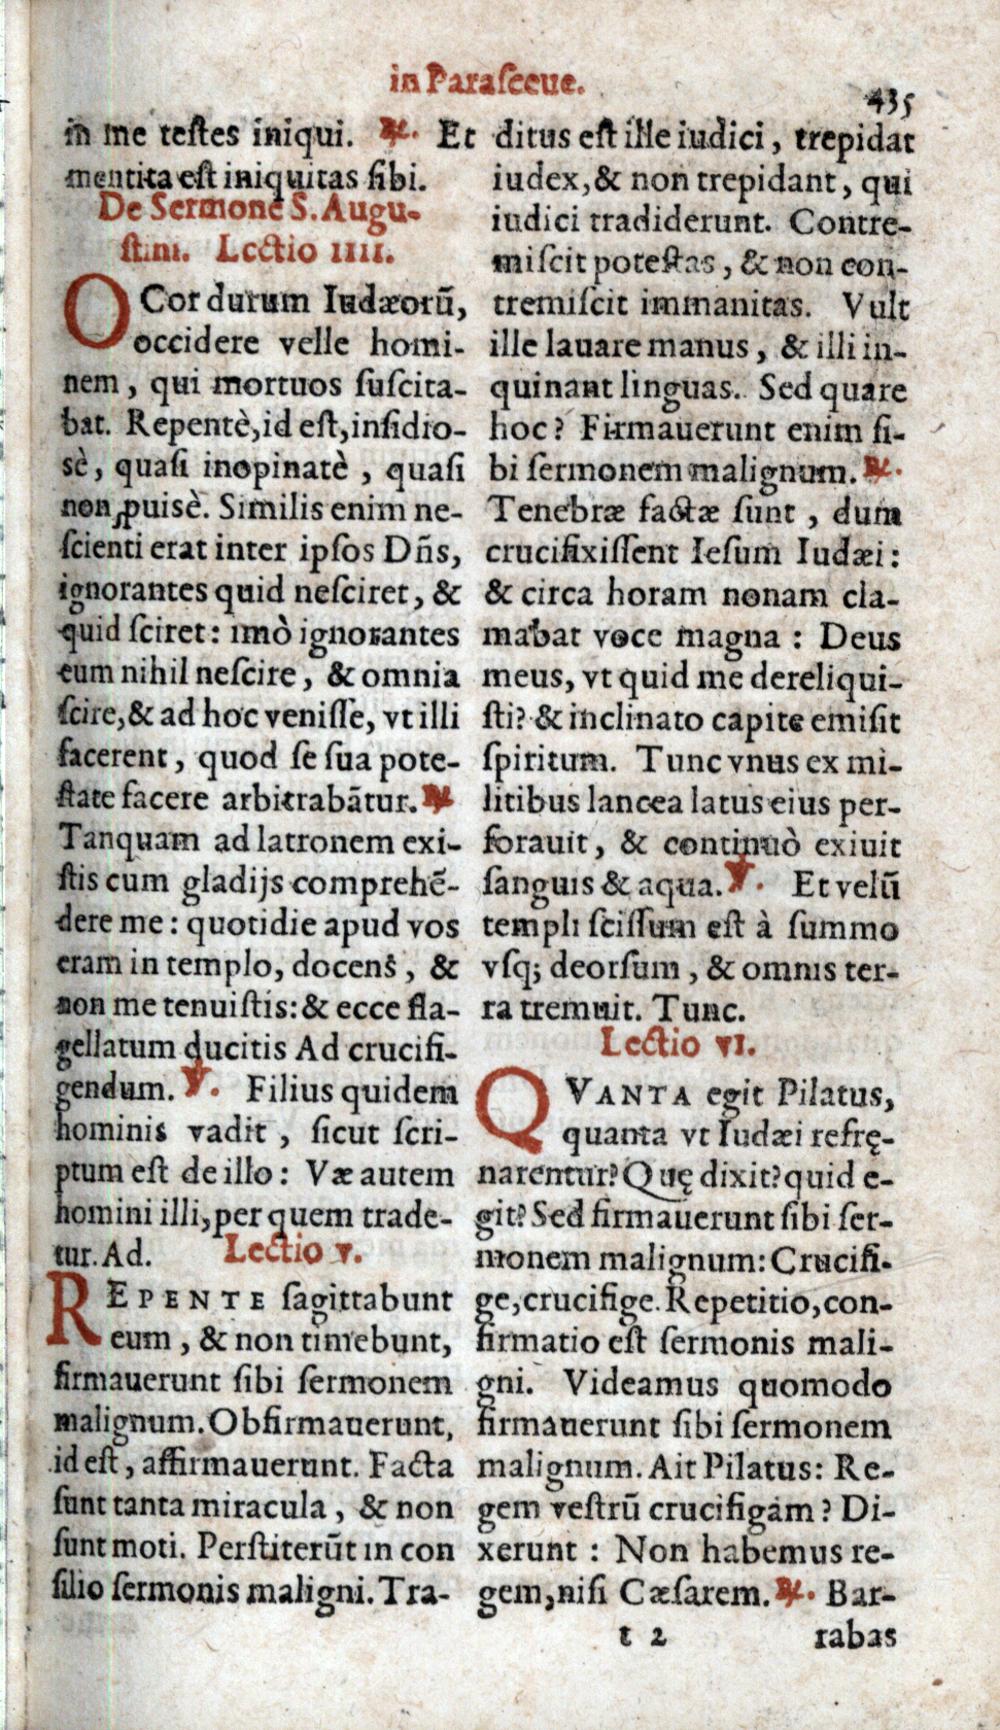 in Parasceue.
435
in me testes iniqui. ℟. Et
mentita est iniquitas sibi.
De Sermone S. Augu-
stini. Lectio IIII.
O Cor durum Iudæorū,
occidere velle homi-
nem, qui mortuos suscita-
bat. Repentè, id est, insidio-
sè, quasi inopinatè, quasi
non ꝓuisè. Similis enim ne-
scienti erat inter ipsos Dñs,
ignorantes quid nesciret, &
quid sciret: imò ignorantes
eum nihil nescire, & omnia
scire, & ad hoc venisse, vt illi
facerent, quod se sua pote-
state facere arbitrabãtur. ℟
Tanquam ad latronem exi-
stis cum gladijs comprehẽ-
dere me: quotidie apud vos
eram in templo, docens, &
non me tenuistis: & ecce fla-
gellatum ducitis Ad crucifi-
gendum. ℣. Filius quidem
hominis vadit, sicut scri-
ptum est de illo: Væ autem
homini illi, per quem trade-
tur. Ad. Lectio v.
REPENTE sagittabunt
eum, & non timebunt,
firmauerunt sibi sermonem
malignum. Obfirmauerunt,
id est, affirmauerunt. Facta
sunt tanta miracula, & non
sunt moti. Perstiterũt in con
silio sermonis maligni. Tra-
ditus est ille iudici, trepidat
iudex, & non trepidant, qui
iudici tradiderunt. Contre-
miscit potestas, & non con-
tremiscit immanitas. Vult
ille lauare manus, & illi in-
quinant linguas. Sed quare
hoc? Firmauerunt enim si-
bi sermonem malignum. ℟.
Tenebræ factæ sunt, dum
crucifixissent Iesum Iudæi:
& circa horam nonam cla-
mabat voce magna: Deus
meus, vt quid me dereliqui-
sti? & inclinato capite emisit
spiritum. Tunc vnus ex mi-
litibus lancea latus eius per-
forauit, & continuò exiuit
sanguis & aqua. ℣. Et velũ
templi scissum est à summo
vsq; deorsum, & omnis ter-
ra tremuit. Tunc.
Lectio VI.
QVANTA egit Pilatus,
quanta vt Iudæi refrę-
narentur? Quę dixit? quid e-
git? Sed firmauerunt sibi ser-
monem malignum: Crucifi-
ge, crucifige. Repetitio, con-
firmatio est sermonis mali-
gni. Videamus quomodo
firmauerunt sibi sermonem
malignum. Ait Pilatus: Re-
gem vestrũ crucifigam? Di-
xerunt: Non habemus re-
gem, nisi Cæsarem. ℟. Bar-
t 2
rabas